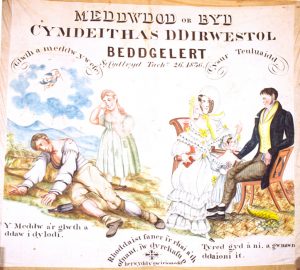 MEDDWDOD OR BYD
CYMDEITHAS DDIRWESTOL
BEDDGELERT
Sefydlwyd Tachr. 26, 1836.
Glwth a meddw yw efe
Y Meddw a'r glwth a
ddaw i dylodi.
Rhoddaist faner i'r rhai a'th
ofnant, i'w dyrchafu
herwydd y gwirionedd
Tyred gyd â ni, a gwnawn
ddaioni it.